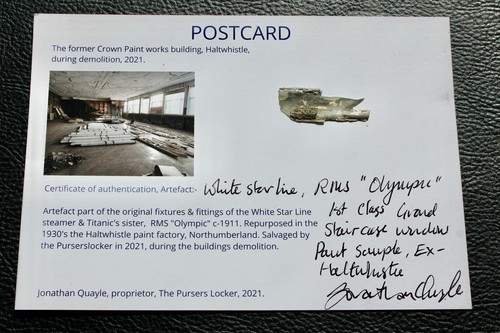 POSTCARD
The former Crown Paint works building, Haltwhistle,
during demolition, 2021.
Certificate of authentication, Artefact:- White star line, RMS "Olympic"
1st Class Grand
Staircase window
Paint Sample, Ex-
Haltwhistle
Artefact part of the original fixtures & fittings of the White Star Line
steamer & Titanic's sister, RMS "Olympic" c-1911. Repurposed in
1930's the Haltwhistle paint factory, Northumberland. Salvaged by
the Purserslocker in 2021, during the buildings demolition.
Jonathan Quayle, proprietor, The Pursers Locker, 2021.
Jonathan Quayle